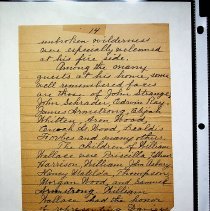 14
unbroken wilderness
were especially welcomed
at his fire side.
Among the many
guests at his home, some
well remembered faces
are those of John Strange,
John Schrader, Edwin Ray,
James Armstrong, Abijah
Whitten, Aron Wood,
Enoch G. Wood,
Forbes and many others.
The children of William
Wallace were Priscilla,
Harrison, William, John
Nancy, Matilda, Thompson,
Morgan Wood and Samuel
Armstrong. William
Wallace had the honor
of representing